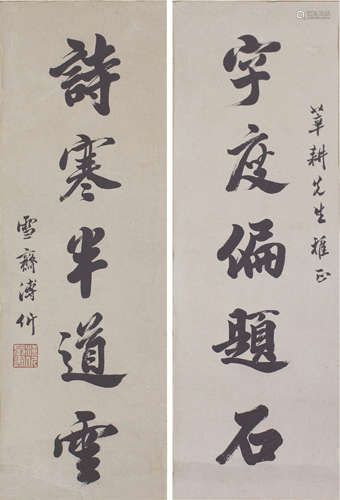 字度偏題石
華耕先生雅正
詩寒半道雲
雪齋溥伒